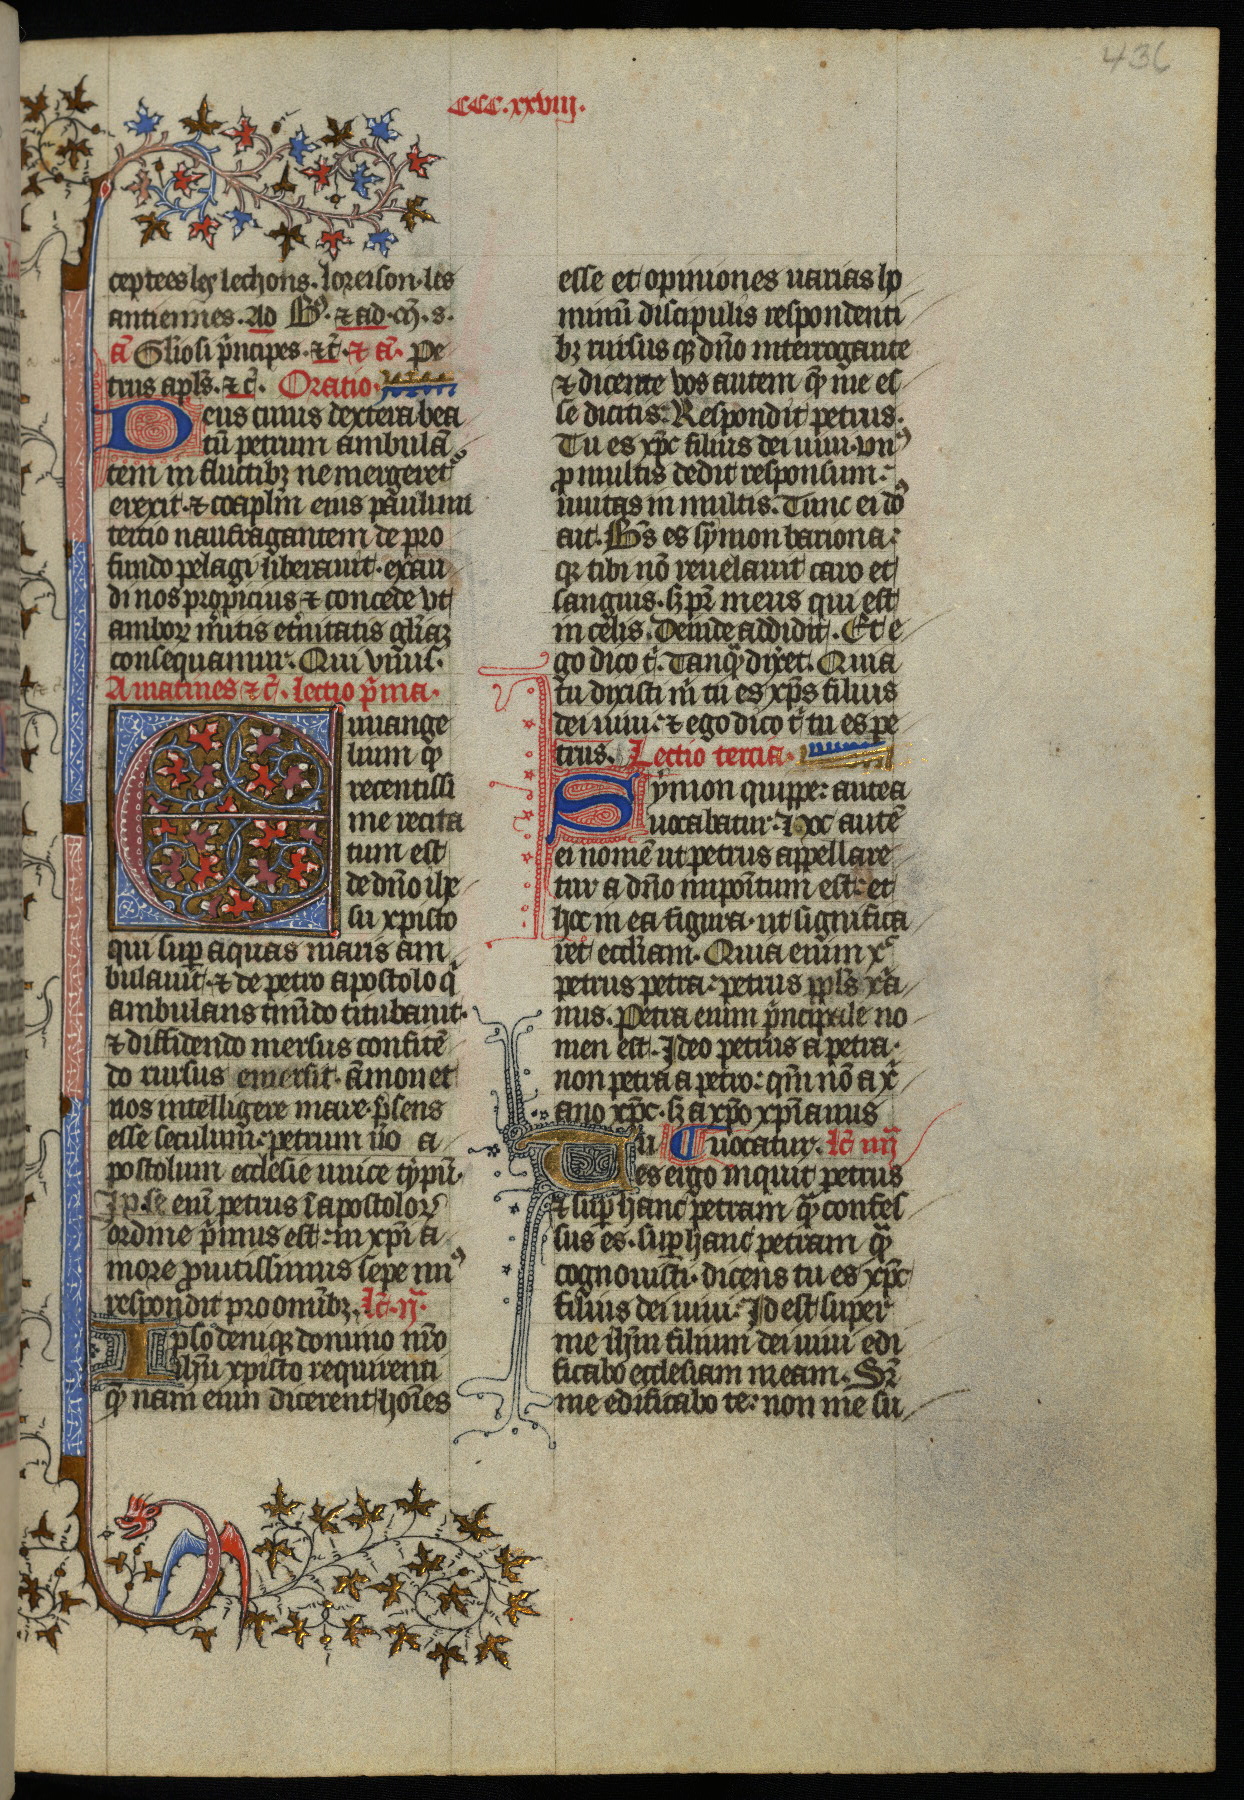 436
CCC.xxviij.
ceptees les lechons. loreison. les
antiennes. Ad B9. ⁊ ad .m̄. s.
a᷃ Gliosi p̄ncipes. ⁊c̄. ⁊ a᷃. Pe
trus apl̄s. ⁊c̄. Oratio.
Deus cuius dextera bea
tū petrum ambulā
tem in fluctibꝫ ne mergeretꝰ
erexit. ⁊ coapl̄m eius paulum
tercio naufragantem de pro
fundo pelagi liberauit. exau
di nos propicius ⁊ concede vt
amboꝝ m̄itis et̄nitatis gl̄iaꝫ
consequamur. Qui viuis.
A matines ⁊c̄. lectio p̄ma.
Euuange
lium ꝙ̄
recentissi
me recita
tum est
de dn̄o ihe
su xpisto
qui suꝑ aquas maris am
bulauit. ⁊ de petro apostolo q̄
ambulans timēdo titubauit.
⁊ diffidendo mersus confitē
do rursus emersit. āmonet
nos intelligere mare p̄sens
esse seculum: petrum ūo a
postolum ecclesie unice tẏpū.
Ip̄se eni petrus ī apostoloꝝ
ordine p̄mus est: in xp̄i a
more ꝓmtissimus sepe unꝰ
respondit pro omībꝫ. lc̄. ij.
Ipso deniqꝫ domino nr̄o
ihū xpisto requirenti
ꝙ̄ nam eum dicerent hoīes
esse et opiniones uarias ho
minū discipulis respondenti
bꝫ rursusqꝫ dn̄o interrogante
⁊ dicente vos autem ꝙ̄ me es
se dicitis: Respondit petrus.
Tu es xp̄c filius dei uiui. vnꝰ
ꝓ multis dedit responsum:
unitas in multis. Tunc ei dō
ait. Bt̄s es sẏmon bariona:
qꝫ tibi nō reuelauit caro et
sanguis. sꝫ pr̄ meus qui est
in celis. Deinde addidit. Et e
go dico t̄. Tanqꝫ dix̄et. Quia
tu dixisti m̄ tu es xp̄s filius
dei uiui: ⁊ ego dico t̄ tu es pe
trus. Lectio tercia.
Sẏmon quippe: antea
uocabatur. Hoc autē
ei nomē ut petrus appellare
tur a dn̄o inpoītum est: et
hoc in ea figura. ut significa
ret eccl̄iam. Quia enim xᷤ
petrus petra: petrus ppl̄s x̄ia
nus. Petra enim p̄ncipale no
men est. Ideo petrus a petra.
non petra a petro: qm̄ nō a x̄i
ano xp̄c. sꝫ a xp̄o xp̄ianus
uocatur. lc̄. iiij
Tu es ergo inquit petrus
⁊ suꝑ hanc petram ꝙ̄ confes
sus es. suꝑ hanc petram ꝙ̄
cognouisti. dicens tu es xp̄c
filius dei uiui: Id est super
me ihm̄ filium dei uiui edi
ficabo ecclesiam meam. Sꝛ
me edificabo te: non me su